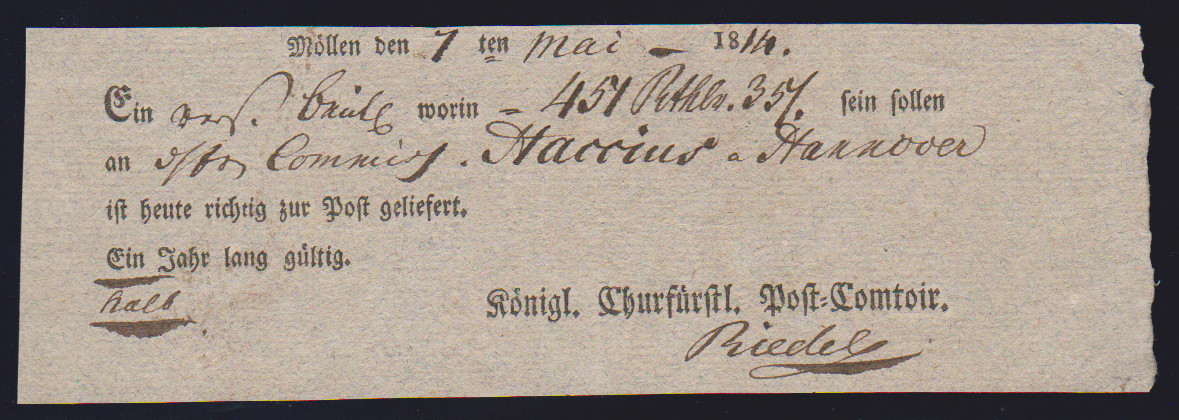 Möllen den 7 ten Mai – 1814.
Ein vers. Beutel worin = 451 Rthlr. 35 f. sein sollen
an Commiss. Haccius a Hannover
ist heute richtig zur Post geliefert.
Ein Jahr lang gültig.
halb
Königl. Churfürstl. Post-Comtoir.
Riedel